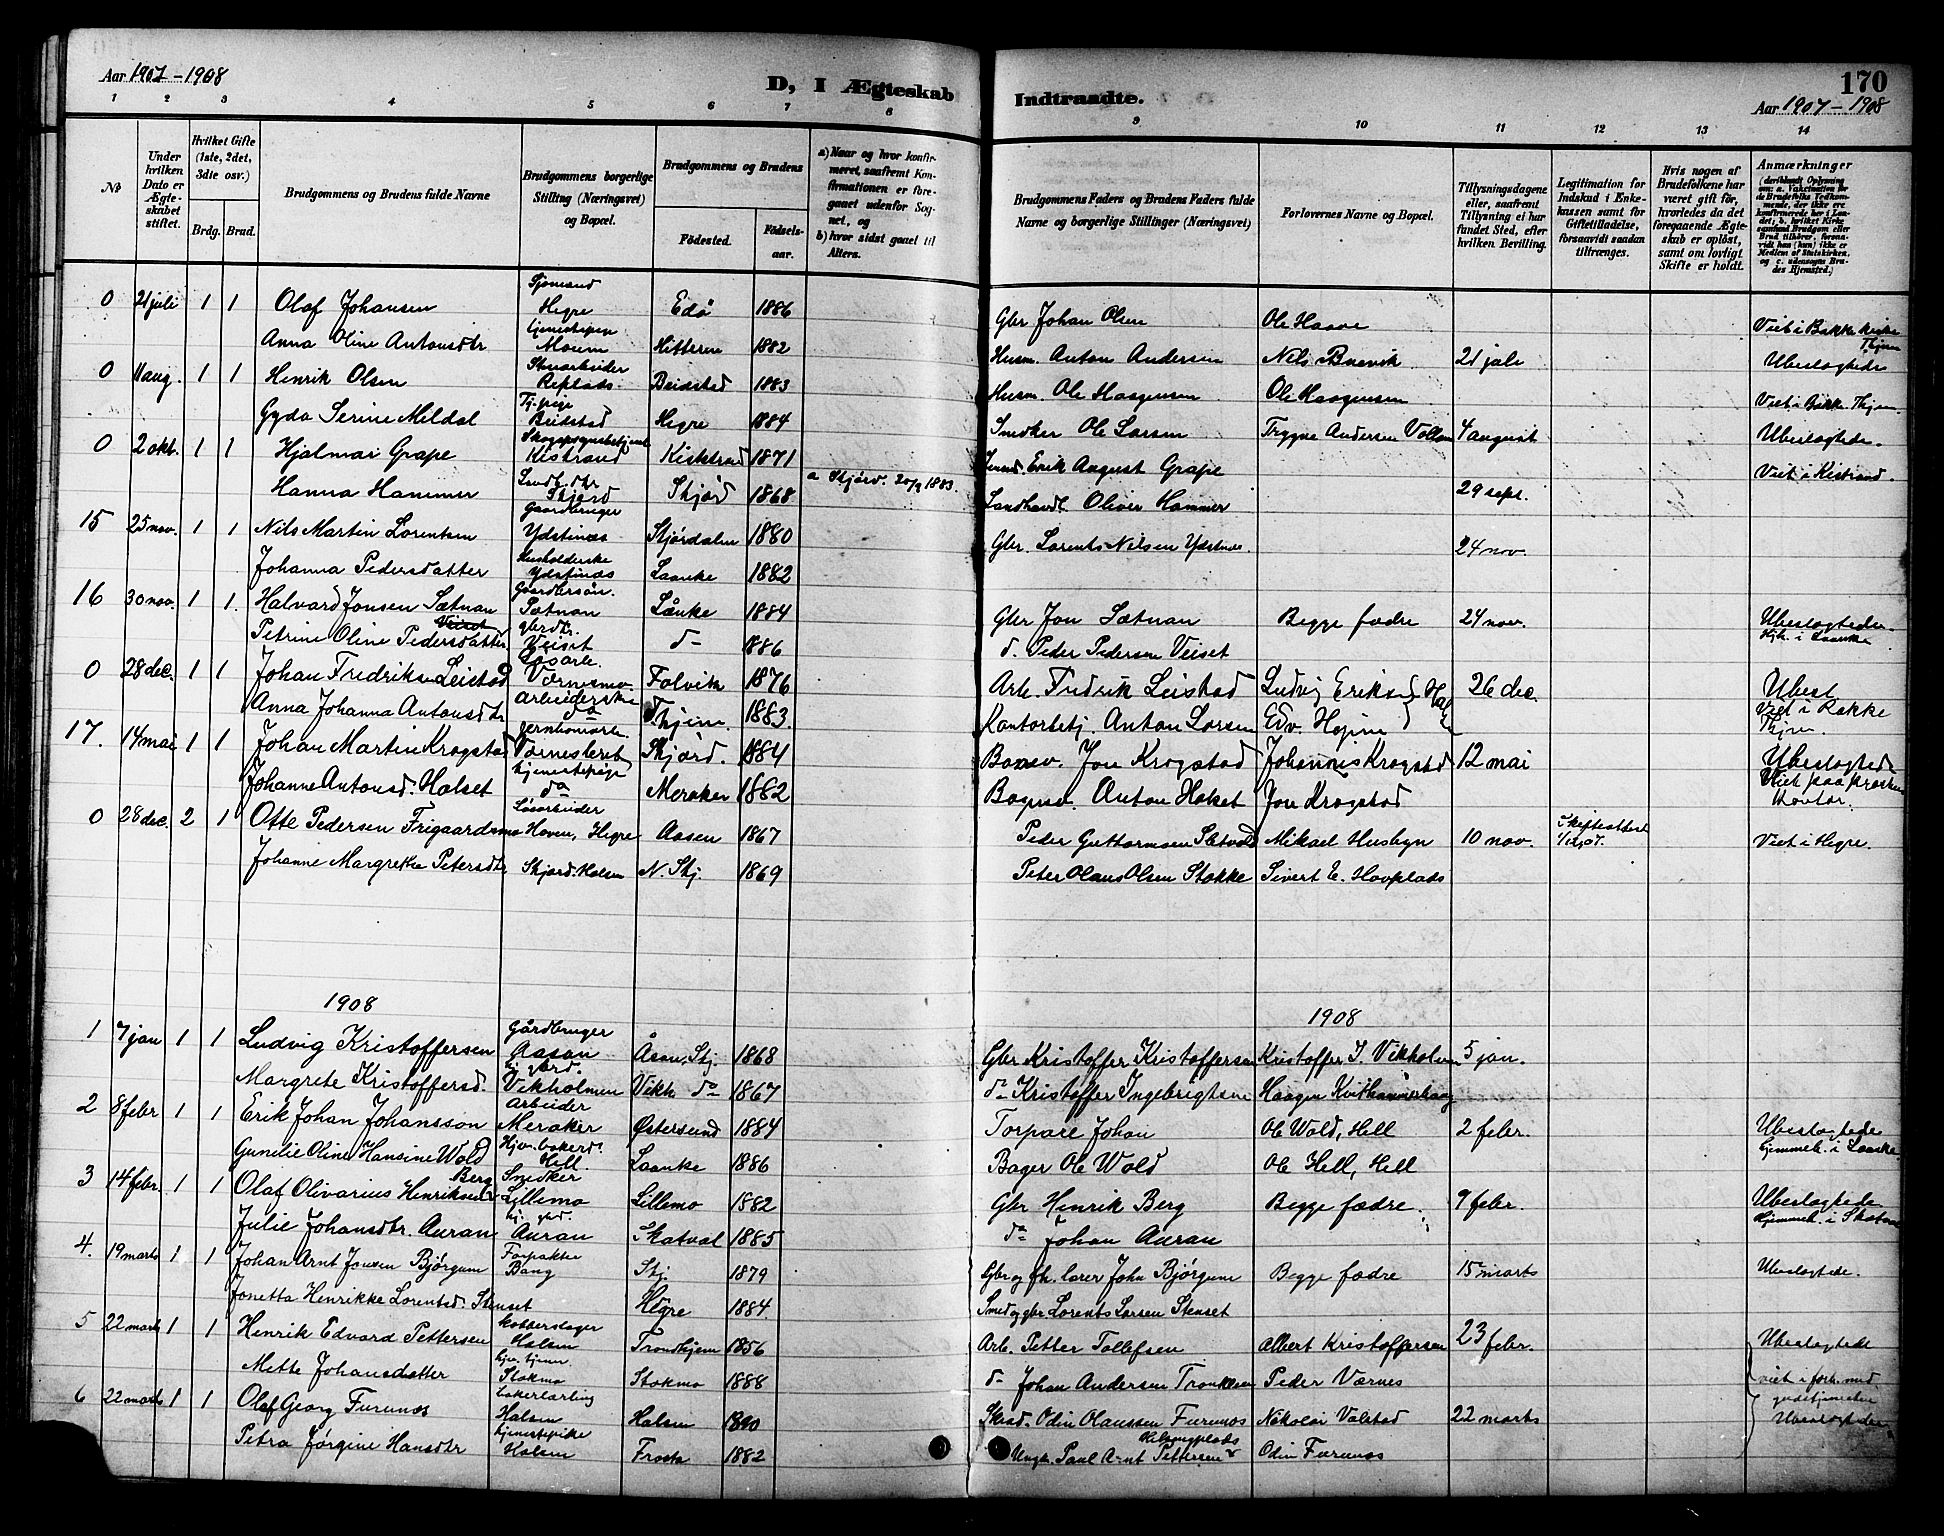 Aar 1907-1908
D, I Ægteskab
Indtraadte.
170
Aar 1907-1908
1 2 3 4 5 6 7 8 9 10 11 12 13 14
No
Under hvilken Dato er Ægteskabet stiftet.
Hvilket Gifte (1ste, 2det, 3die osv.)
Brdg. Brud.
Brudgommens og Brudens fulde Navne
Brudgommens borgerlige Stilling (Næringsvei) og Bopæl.
Brudgommens og Brudens
Födested. Födselsaar.
a) Naar og hvor konfirmeret, saafremt Konfirmationen er foregaaet udenfor Sognet, og
b) hvor sidst gaaet til Alters.
Brudgommens Faders og Brudens Faders fulde Navne og borgerlige Stillinger (Næringsvei)
Forlovernes Navne og Bopæl.
Tillysningsdagene eller, saafremt Tillysning ei har fundet Sted, efter hvilken Bevilling.
Legitimation for Indskud i Enkekassen samt for Giftetilladelse, forsaavidt saadan tiltrænges.
Hvis nogen af Brudefolkene har været gift för, hvorledes da det foregaaende Ægteskab er oplöst, samt om lovligt Skifte er holdt.
Anmærkninger
0 21 juli 1 1 Olaf Johansen Hegre Edø 1886 Gbr Johan Olsen Ole Haave Viet i Bakke kirke
Anna Oline Antonsdtr Moum Hitteren 1882 Husm. Anton Andersen Nils Buevik 21 juli Ubeslegtede
0 11 aug. 1 1 Henrik Olsen Beidstad 1883 Husm. Ole Haagensen Ole Haagensen Viet i Bakke Thjem
Gyda Serine Meldal Tj. pige Beidstad Hegre 1884 Snedker Ole Larsen Trygve Andersen Vollan 4 august Ubeslegtede
0 2 okt. 1 1 Hjalmar Grape Kistrand Kistrand 1871 Erik August Grape Viet i Kistrand.
Hanna Hammer Landh. dtr Stjørd Stjørd 1868 a Stjørd. 20/9 1883. Landhandl. Oliver Hammer 29 sept.
15 25 nov. 1 1 Nils Martin Lorentsen Gaardbruger Ydstinæs Stjørdalen 1880 Gbr. Lorents Nilsen Ydstnes 24 nov.
Johanna Pedersdatter Husholderske Ydstinæs Laanke 1882
16 30 nov. 1 1. Halvard Jonsen Sætnan Gaardbrsøn. Sætnan Lånke 1884 Gbr Jon Sætnan Begge fædre 24 nov. Ubeslegtede
Petrine Oline Pedersdatter Veiset gbrdtr. Veiset do 1886 d. Peder Pedersen Veiset Hjh. i Laanke
0 28 dec. 1 1 Johan Fredriksen Leistad Værnesmo Folvik 1876 Arb. Fredrik Leistad Ludvig Eriksen 26 dec. Ubesl
Anna Johanna Antonsdtr Arbeiderske do Thjem. 1883. Kontorbetj. Anton Larsen Edv. Hojem Viet i Bakke Thjem.
17. 14 mai 1 1 Johan Martin Krogstad Jernbanearb. Værnesleret Stjørd. 1884 Banev. Jon Krogstad Johannes Krogstad 12 mai Ubeslegtede
Johanne Antonsd. Halset tjenestepige do Meraker 1882 Anton Halset Jon Krogstad Viet paa prestens kontor.
0 28 dec. 2 1 Otte Pedersen Frigaardsmo Løsarbeider Hoven, Hegre Aasen 1867 Peder Guttormsen Sletvold Mikael Husbyn 10 nov. Skifteattest 1/12,07. Viet i Hegre.
Johanne Margrethe Petersdtr Stjørd. Halsen N. Stj. 1869 Peter Olaus Olsen Stokke Sivert E. Hovplads
1908 1908
1 7 jan 1 1 Ludvig Kristoffersen Gårdbruger Aasan Åsan, Stj. 1868 Gbr Kristoffer Kristoffersen Kristoffer I. Vikholmen 5 jan.
Margrete Kristoffersd. Vikholmen Vikh. do 1867 do Kristoffer Ingebrigtsen Haagen Kvithammerhaug
2 8 febr 1 1 Erik Johan Johansson Arbeider Meraker Østersund 1884 Torpare Johan Ole Wold, Hell 2 febr. Ubeslegtede
Gunelie Oline Hansine Wold Hjv. bakerd. Hell. Laanke 1886 Bager Ole Wold Ole Hell, Hell hjemmeh. i Laanke
3 14 febr. 1 1 Olaf Olivarius Henriksen Berg Snedker Lillemo Lillemo 1882 Gbr Henrik Berg Begge fædre. 9 febr. Ubeslegtede
Julie Johansdtr. Auran hj. gbd. Auran Skatval 1885 do Johan Auran Hjemmeh. i Skatval
4. 19 marts 1 1 Johan Arnt Jonsen Bjørgum Forpakter Bang Stj. 1879 Gbr og fh. lærer John Bjørgum Begge fædre 15 marts Ubeslegtede.
Jonetta Henrikke Lorentsd. Stenset Hegre 1884. Smed og gbr Lorents Larsen Stenset
5 22 marts 1 1 Henrik Edvard Pettersen Kobberslager Halsen Trondhjem 1856 Arb. Petter Tollefsen Albert Kristoffersen 23 febr. Ubeslegtede
Mette Johansdatter hjv. tjener Stokmo Stokmo 1888 d. Johan Andersen Peder Værnes viet i forb. med gudstjenesten
6 22 marts 1 1 Olaf George Furunes bakerlærling Halsen Halsen 1890 Odin Olaussen Furunes Nikolai Valstad 22 marts Ubeslegtede
Petra Jørgine Hansdtr tjenestepike Halsen Frosta 1882 Ungk. Paul Arnt Pettersen Odin Furunes